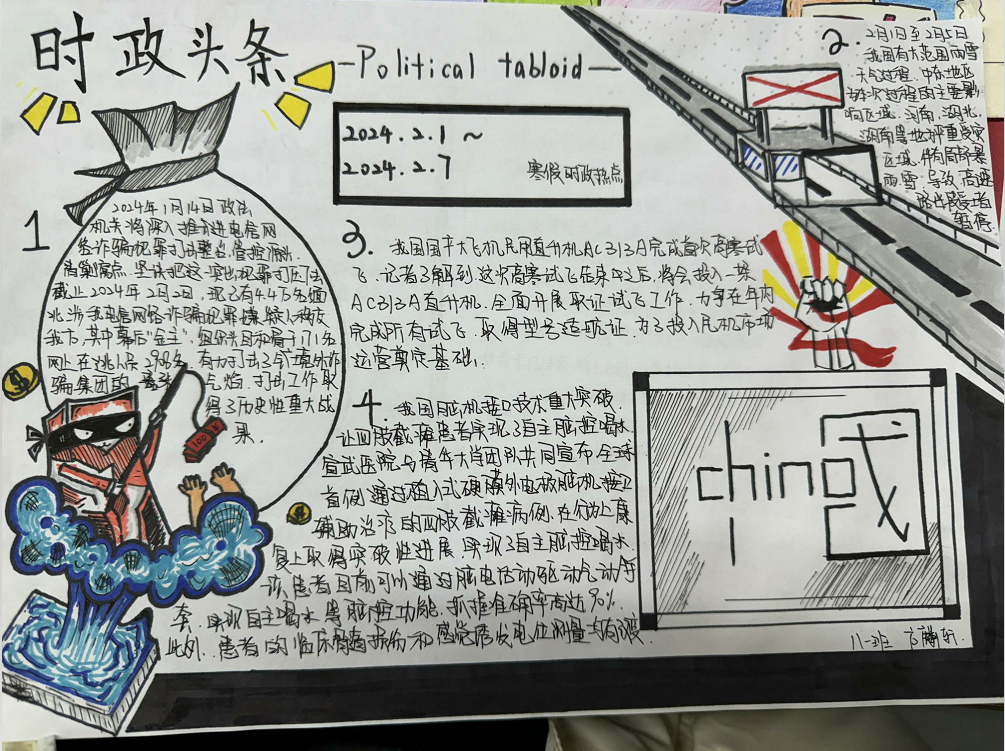 时政头条
-Political tabloid-
2024.2.1~
2024.2.7
寒假时政热点
1
2024年1月14日政法
机关将深入推进电信网
络诈骗犯罪打击整治
截止2024年2月2日,现已有4.4万名缅
北涉我电信网络诈骗犯罪嫌疑人移交
我方,其中幕后"金主",组织头目和骨干171名
网上在逃人员
骗集团的嚣张气焰,打击工作取
得了历史性重大战
果.
100
2.
2月1日至2月5日
我国有大范围雨雪
天气过程.中东地区
为本次过程的主要影
响区域.河南,湖北,
湖南等地严重受灾
区域,伴有局部暴
雨雪,导致高速
路出
暂停.
3.
我国国产大飞机民用直升机AC313A完成首次高寒试
飞.记者了解到这次高寒试飞结束以后,将会投入一架
AC313A直升机,全面开展取证试飞工作,力争在年内
完成所有试飞,取得型号适航证,为了投入民机市场
运营奠定基础.
4.
我国脑机接口技术重大突破,
让四肢截瘫患者实现了自主脑控喝水
宣武医院与清华大学团队共同宣布全球
首例通过植入式硬膜外电极脑机接口
辅助治疗的四肢截瘫病例,在行为上康
复上取得突破性进展,实现了自主脑控喝水.
该患者目前可以通过脑电活动驱动气动手
套,实现自主喝水等脑控功能,抓握准确率高达90%.
此外,患者的临床脊髓损伤和感觉诱发电位测量均有
china
八一班